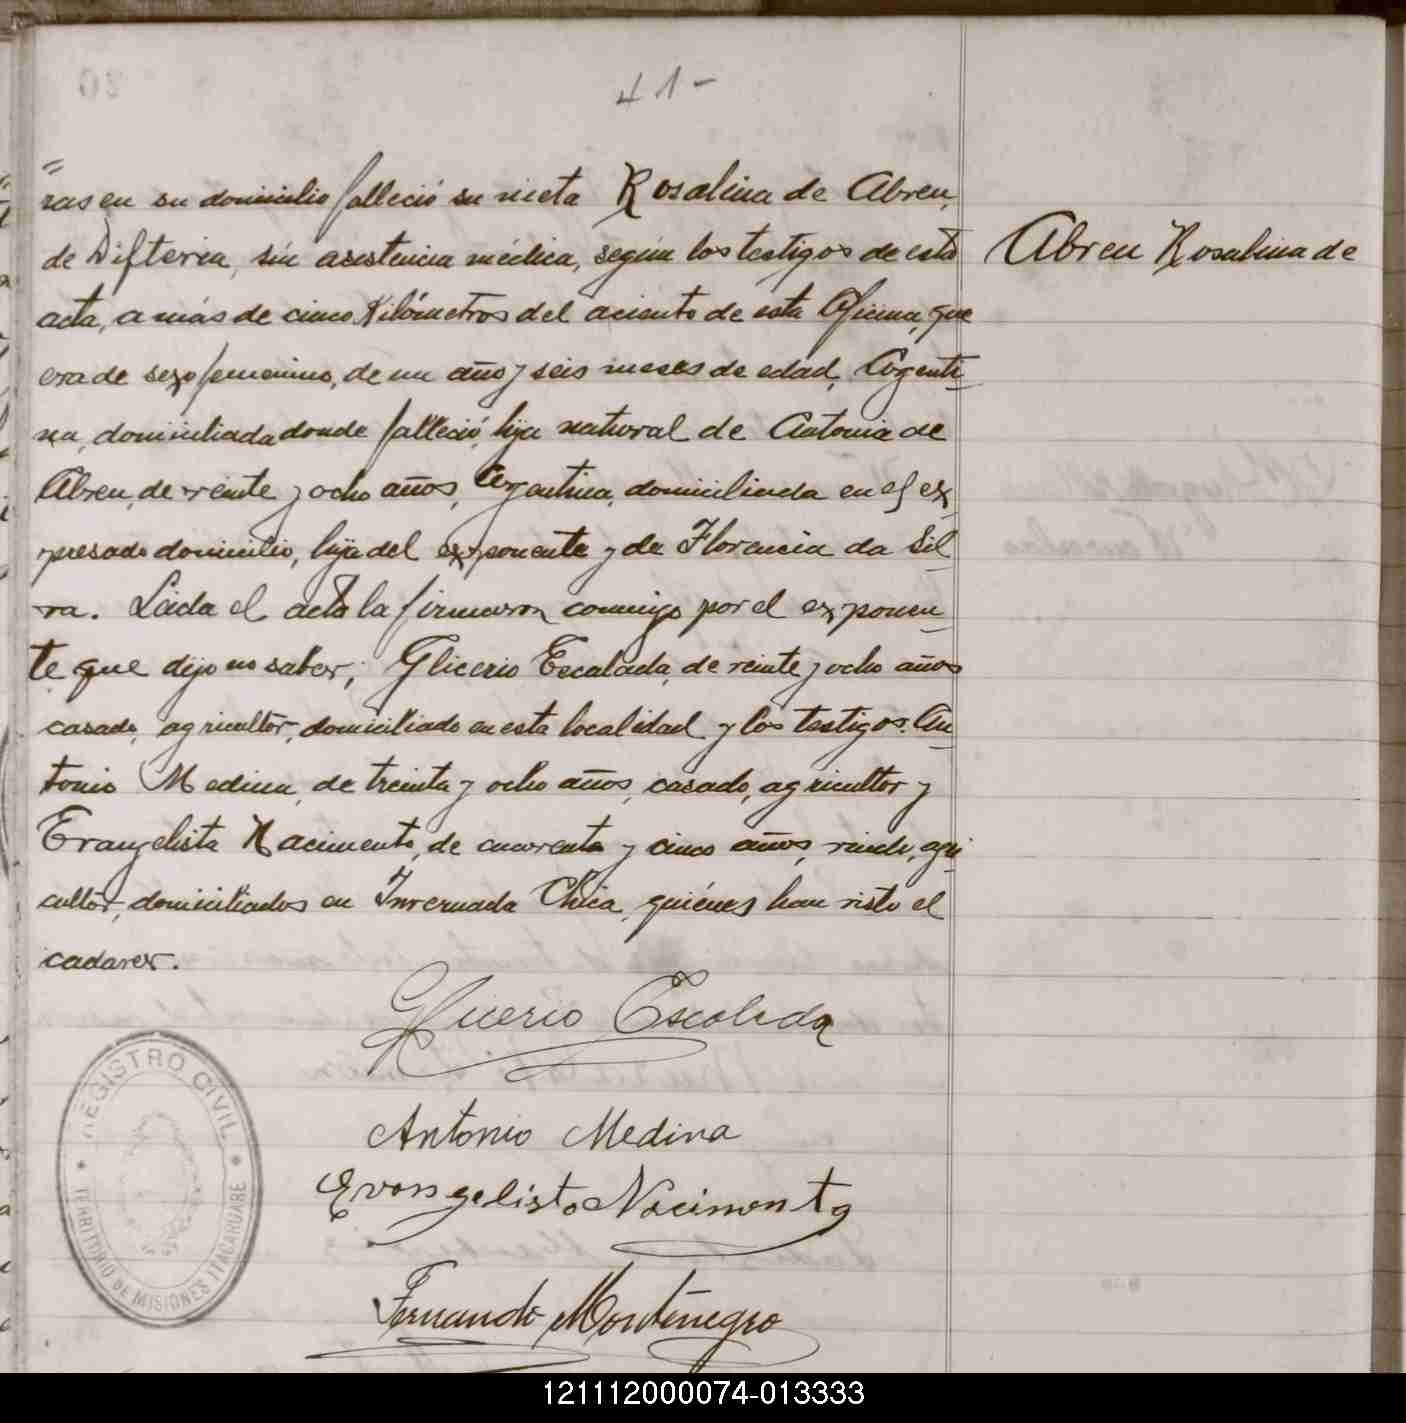 41-
ras en su domicilio falleció su nieta Rosalina de Abreu,
de Difteria, sin asistencia médica, según los testigos de esta
acta, a más de cinco Kilómetros del aciento de esta Oficina, que
era de sexo femenino, de un año y seis meses de edad, Argenti-
na, domiciliada donde falleció, hija natural de Antonia de
Abreu, de veinte y ocho años, Argentina, domiciliada en el ex-
presado domicilio, hija del exponente y de Florencia da Sil-
va. Leida el acta la firmaron conmigo por el exponen-
te que dijo no saber; Glicerio Escalada, de veinte y ocho años
casado, agricultor, domiciliado en esta localidad y los testigos. An-
tonio Medina, de treinta y ocho años, casado, agricultor y
Evangelista Nacimento, de cuarenta y cinco años, viudo, agri-
cultor, domiciliados en Invernada Chica, quiénes han visto el
cadaver.
Abreu Rosalina de
Glicerio Escalada
Antonio Medina
Evangelisto Nacimento
Fernando Montenegro
REGISTRO CIVIL
TERRITORIO DE MISIONES ITACARUARE
121112000074-013333